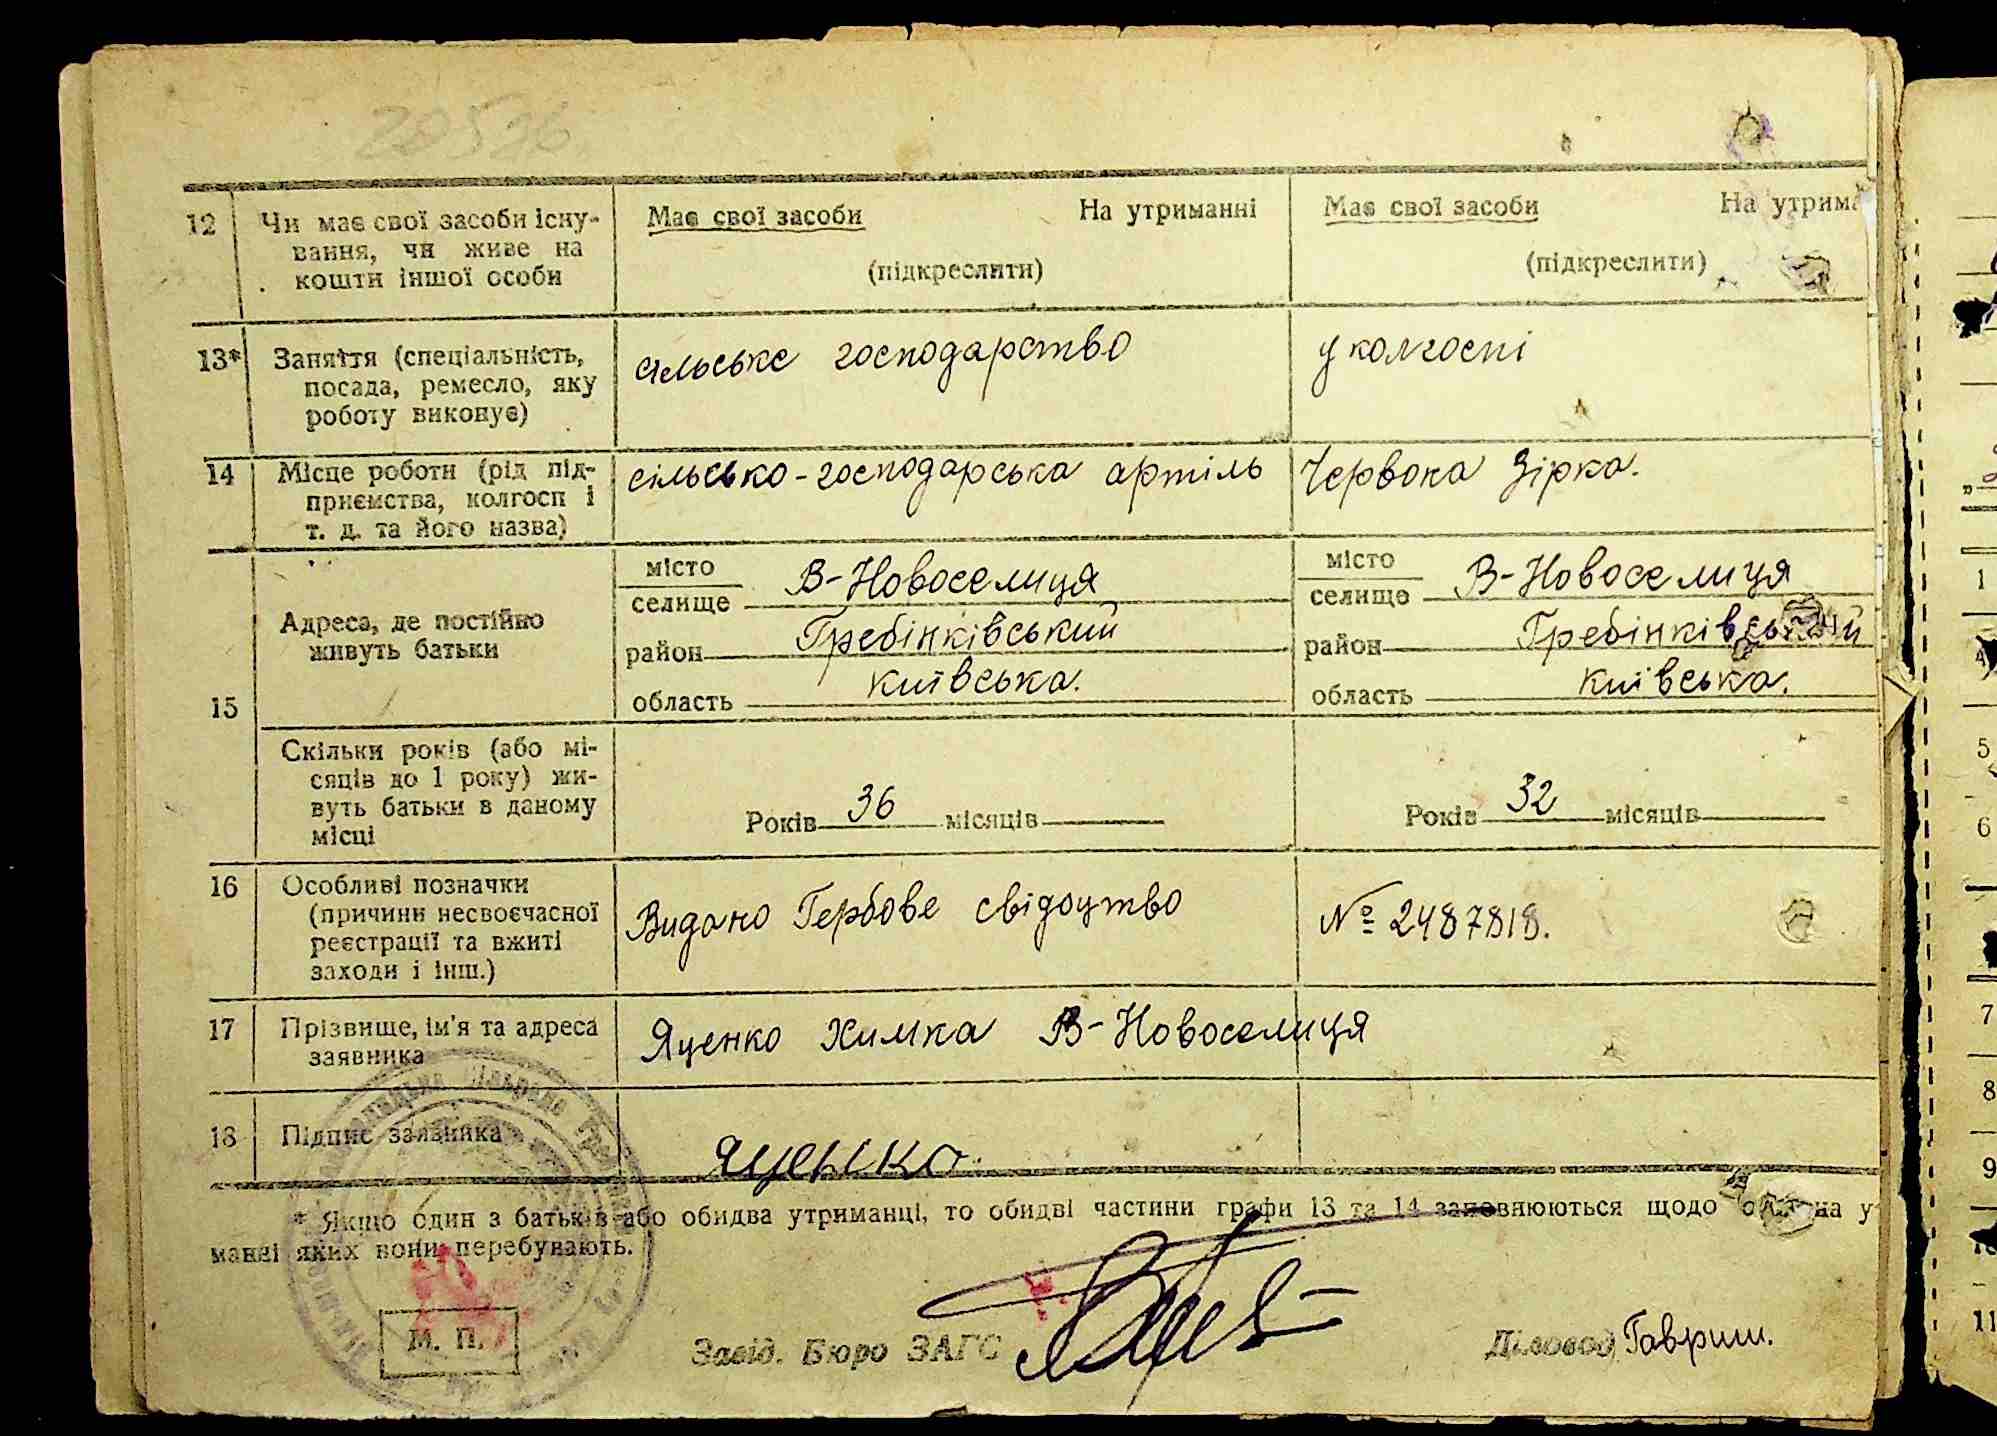 20536
12 Чи має свої засоби існу-
вання, чи живе на
кошти іншої особи
Має свої засоби На утриманні
(підкреслити)
Має свої засоби На утрима
(підкреслити)
13* Заняття (спеціальність,
посада, ремесло, яку
роботу виконує)
сільське господарство
у колгоспі
14 Місце роботи (рід під-
приємства, колгосп і
т. д. та його назва)
сільсько-господарська артіль Червона Зірка.
15
Адреса, де постійно
живуть батьки
місто
селище В-Новоселиця
район Гребінківський
область київська.
місто
селище В-Новоселиця
район Гребінківський
область київська.
Скільки років (або мі-
сяців до 1 року) жи-
вуть батьки в даному
місці
Років 36 місяців
Років 32 місяців
16 Особливі позначки
(причини несвоєчасної
реєстрації та вжиті
заходи і інш.)
Видано Гербове свідоцтво № 2487818.
17 Прізвище, ім'я та адреса
заявника
Яценко Химка В-Новоселиця
18 Підпис заявника
яценко.
* Якщо один з батьків або обидва утриманці, то обидві частини графи 13 та 14 заповнюються щодо на у
манні яких вони перебувають.
М. П.
Завід. Бюро ЗАГС
Діловод Гавриш.
1
4
5
6
7
8
9
10
11